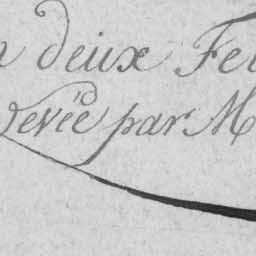 deux Fe
Levée par M